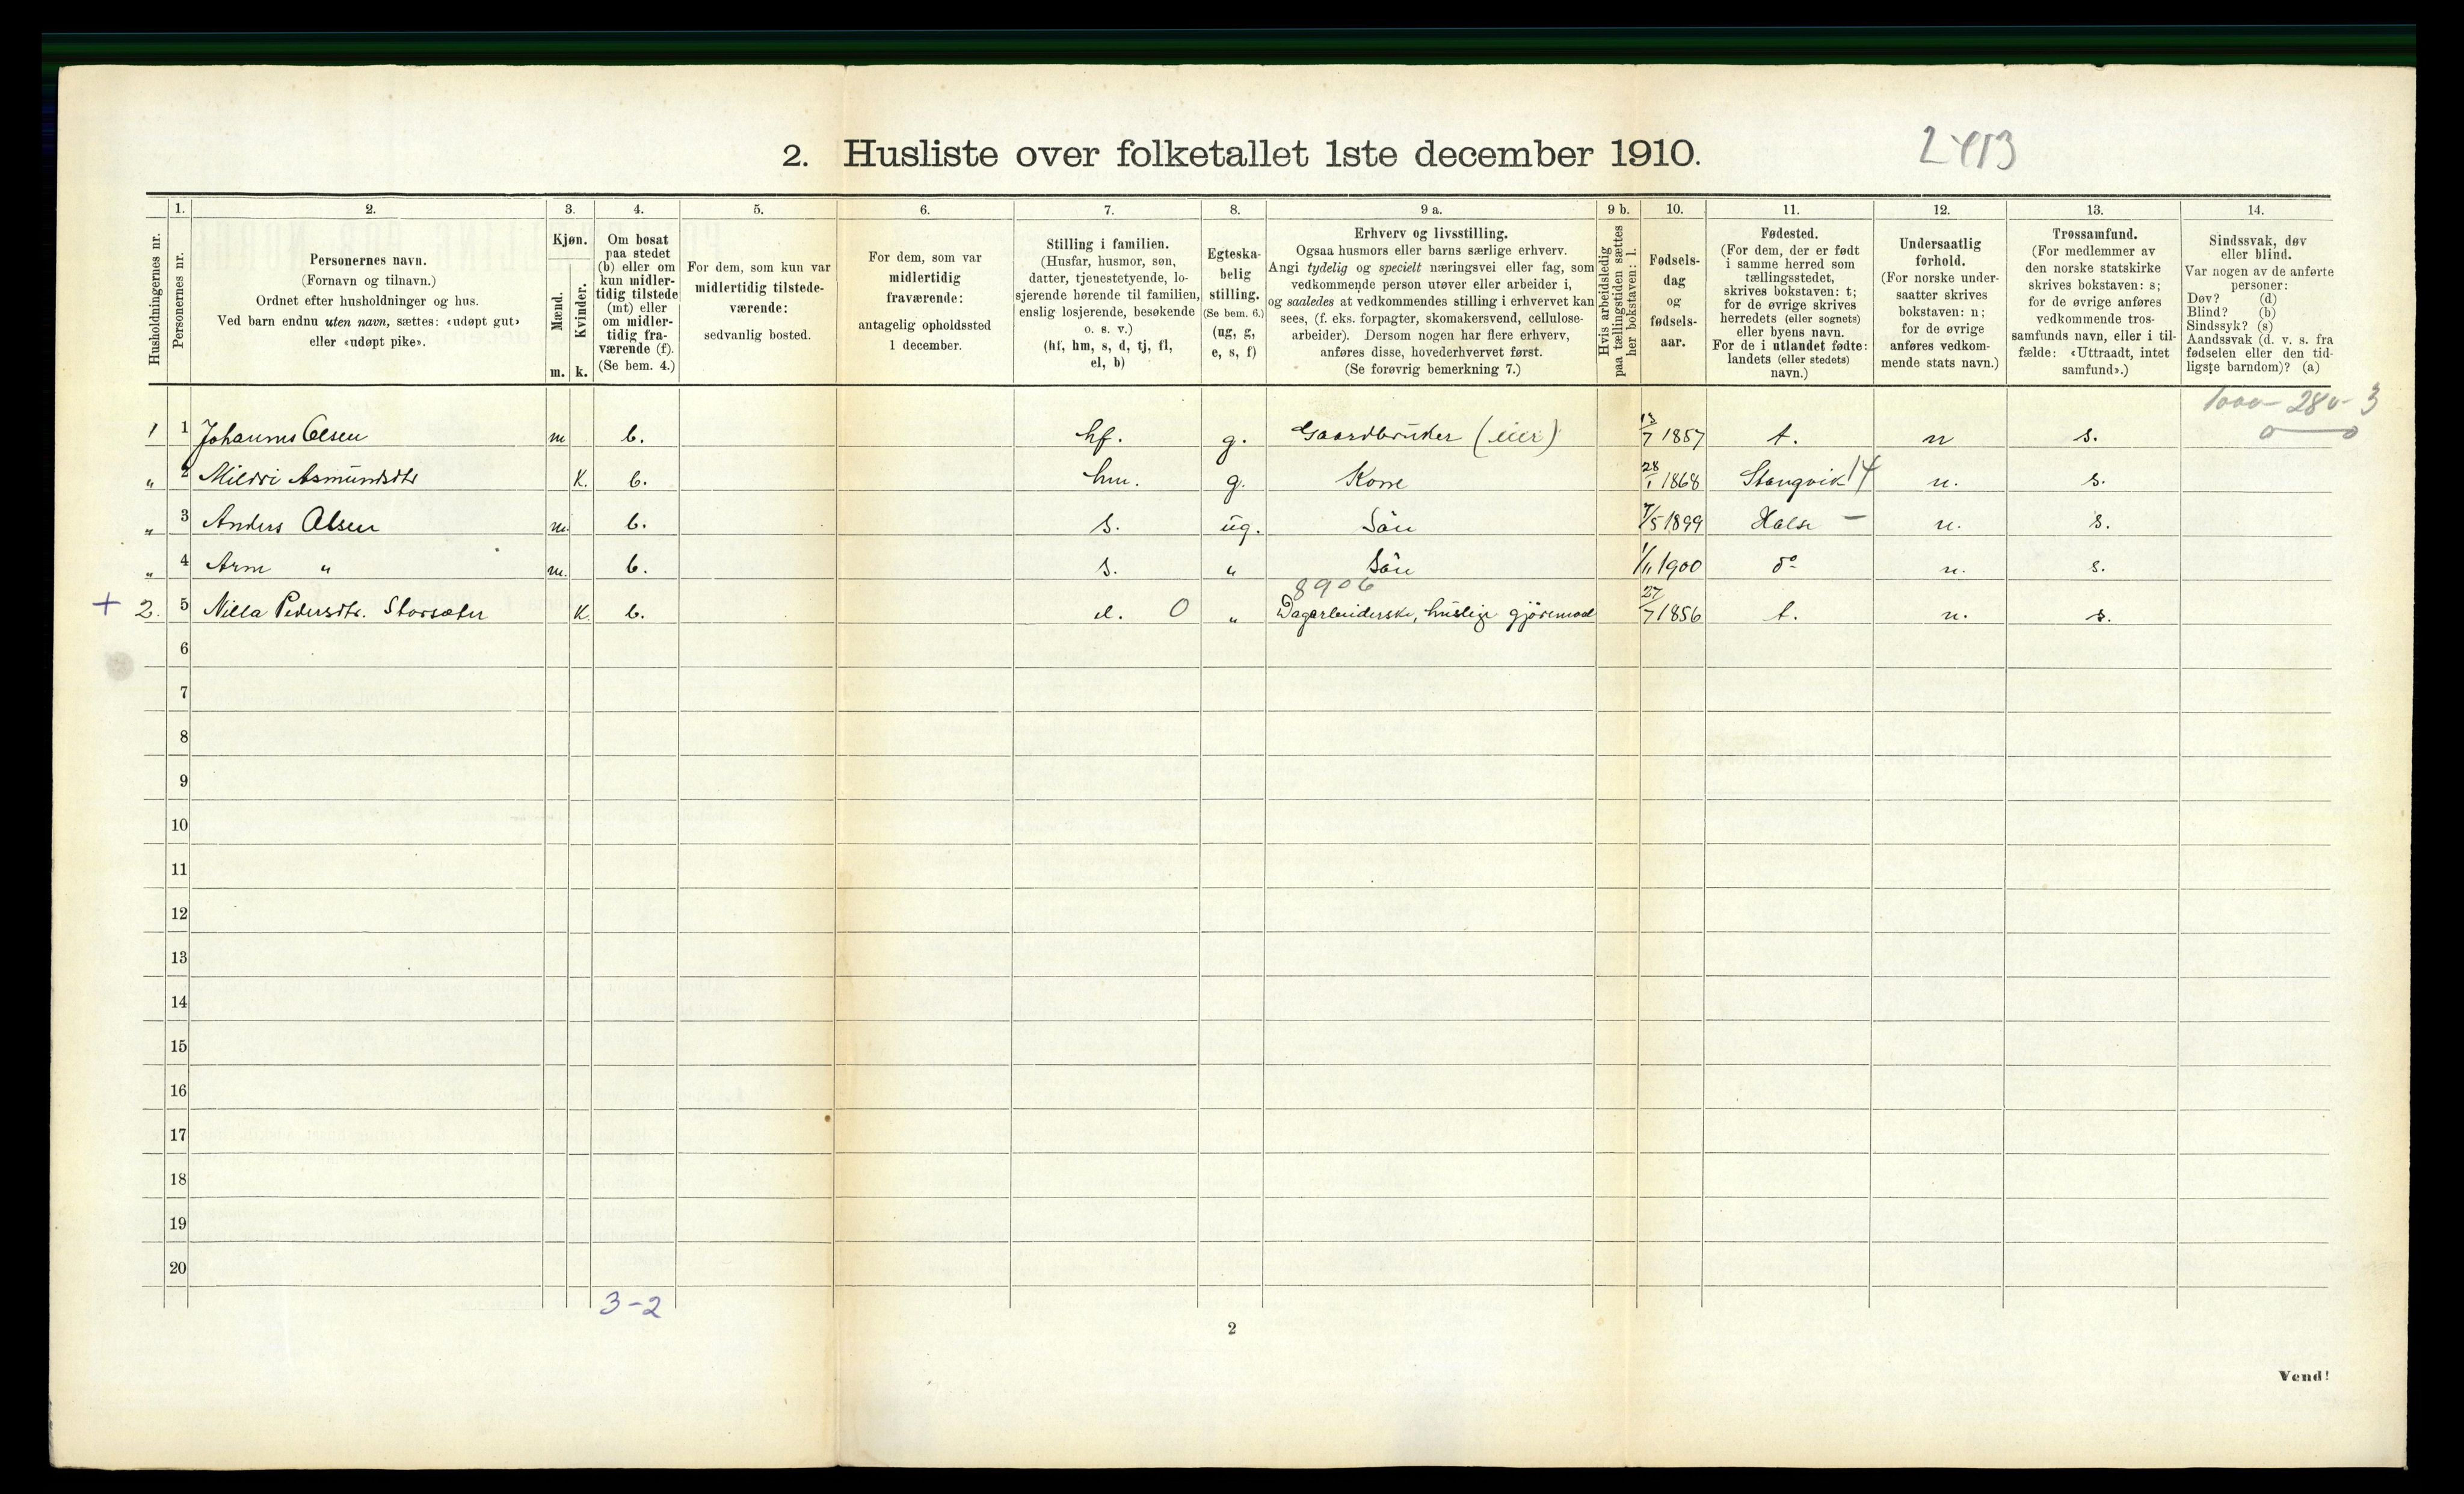 2. Husliste over folketallet 1ste december 1910.
1. 2. 3. 4. 5. 6. 7. 8. 9 a. 9 b. 10. 11. 12. 13. 14.
Husholdningernes nr.
Personernes nr.
Personernes navn.
(Fornavn og tilnavn.)
Ordnet efter husholdninger og hus.
Ved barn endnu uten navn, sættes: «udøpt gut»
eller «udøpt pike».
Kjøn.
Mænd.
Kvinder.
m. k.
Om bosat
paa stedet
(b) eller om
kun midler-
tidig tilstede
(mt) eller
om midler-
tidig fra-
værende (f).
(Se bem. 4.)
For dem, som kun var
midlertidig tilstede-
værende:
sedvanlig bosted.
For dem, som var
midlertidig
fraværende:
antagelig opholdssted
1 december.
Stilling i familien.
(Husfar, husmor, søn,
datter, tjenestetyende, lo-
sjerende hørende til familien,
enslig losjerende, besøkende
o. s. v.)
(hf, hm, s, d, tj, fl,
el, b)
Egteska-
belig
stilling.
(Se bem. 6.)
(ug, g,
e, s, f)
Erhverv og livsstilling.
Ogsaa husmors eller barns særlige erhverv.
Angi tydelig og specielt næringsvei eller fag, som
vedkommende person utøver eller arbeider i,
og saaledes at vedkommendes stilling i erhvervet kan
sees, (f. eks. forpagter, skomakersvend, cellulose-
arbeider). Dersom nogen har flere erhverv,
anføres disse, hovederhvervet først.
(Se forøvrig bemerkning 7.)
Hvis arbeidsledig
paa tællingstiden sættes
her bokstaven: l.
Fødsels-
dag
og
fødsels-
aar.
Fødested.
(For dem, der er født
i samme herred som
tællingsstedet,
skrives bokstaven: t;
for de øvrige skrives
herredets (eller sognets)
eller byens navn.
For de i utlandet fødte:
landets (eller stedets)
navn.)
Undersaatlig
forhold.
(For norske under-
saatter skrives
bokstaven: n;
for de øvrige
anføres vedkom-
mende stats navn.)
Trossamfund.
(For medlemmer av
den norske statskirke
skrives bokstaven: s;
for de øvrige anføres
vedkommende tros-
samfunds navn, eller i til-
fælde: «Uttraadt, intet
samfund».)
Sindssvak, døv
eller blind.
Var nogen av de anførte
personer:
Døv? (d)
Blind? (b)
Sindssyk? (s)
Aandssvak (d. v. s. fra
fødselen eller den tid-
ligste barndom)? (a)
1 1 Johannes Olsen m b. hf. g. Gaardbruker (eier) 13/7 1857 t. n s.
„ 2 Mildri Asmundsdtr K. b. hm. g. Kone 28/1 1868 Stangvik 14 n. s.
„ 3 Anders Olsen m. b. s. ug. Sön 7/5 1899 Halse — n. s.
„ 4 Arne „ m. b. s. „ Sön 1/11 1900 do n. s.
8906
+ 2. 5 Nilla Pedersdtr. Storsæter K. b. el. 0 „ Dagarbeiderske, huslige gjöremaal 27/7 1856 t. n. s.
6
7
8
9
10
11
12
13
14
15
16
17
18
19
20
3-2
2
Vend!